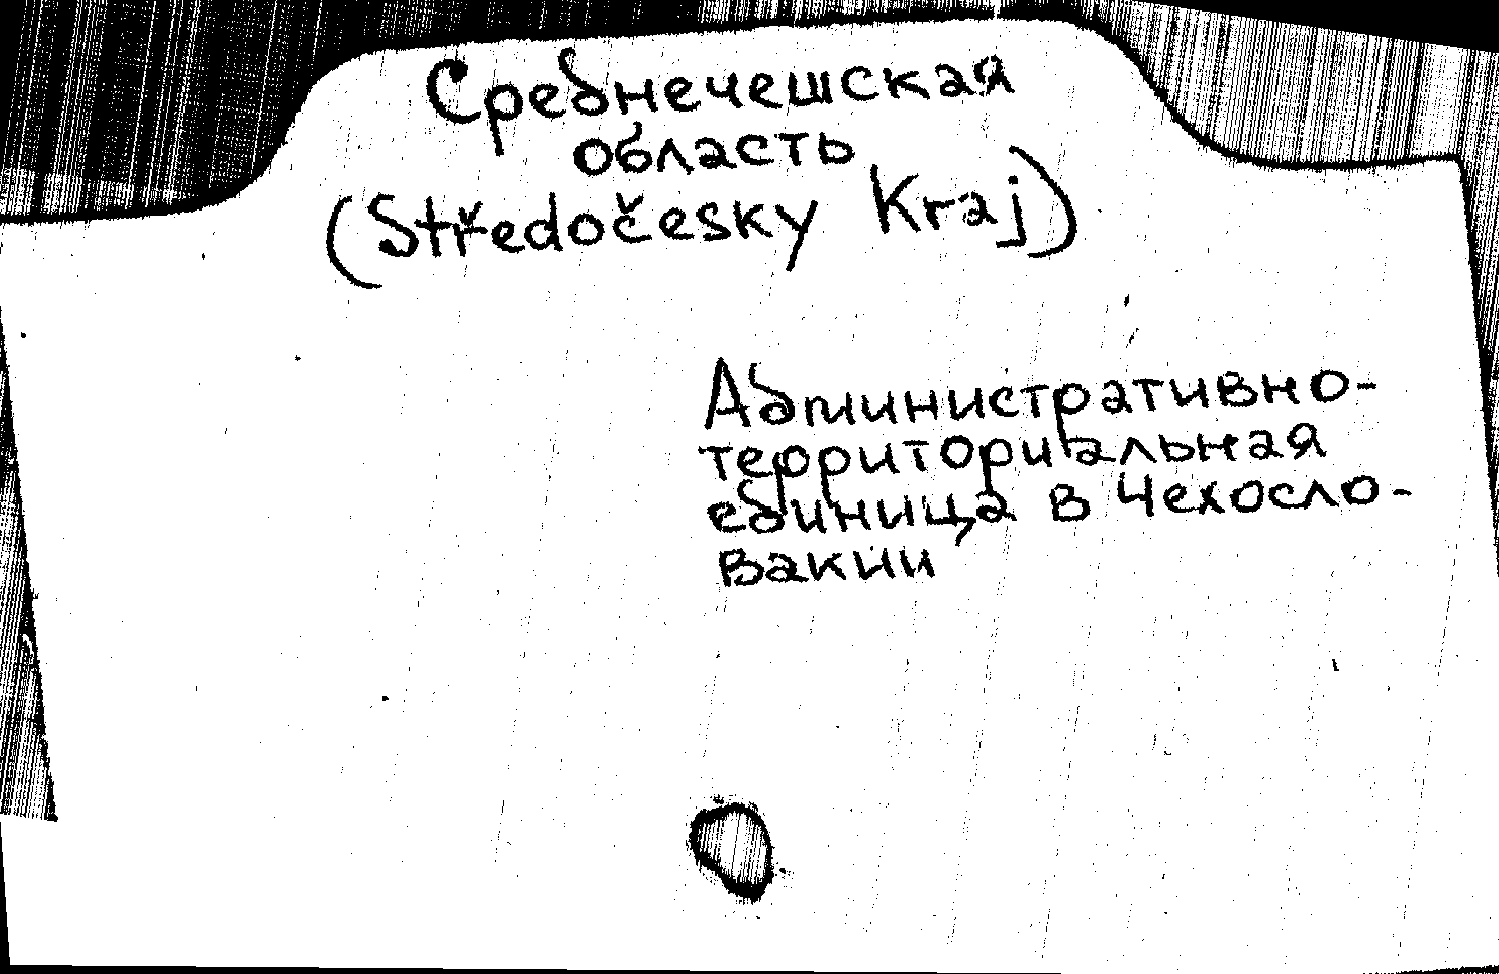 Среднечешская
область
(Středočesky Kraj)
Административно-
территориальная
единица в Чехосло-
вакии